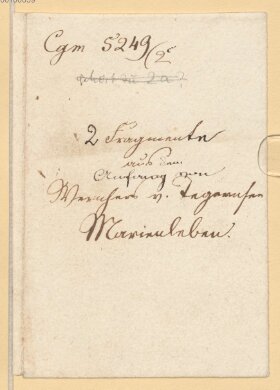 Cgm 5249/2c
gehört zu 2a?
2 Fragmente
aus dem
Anfang von
Wernhers v. Tegernsee
Marienleben.